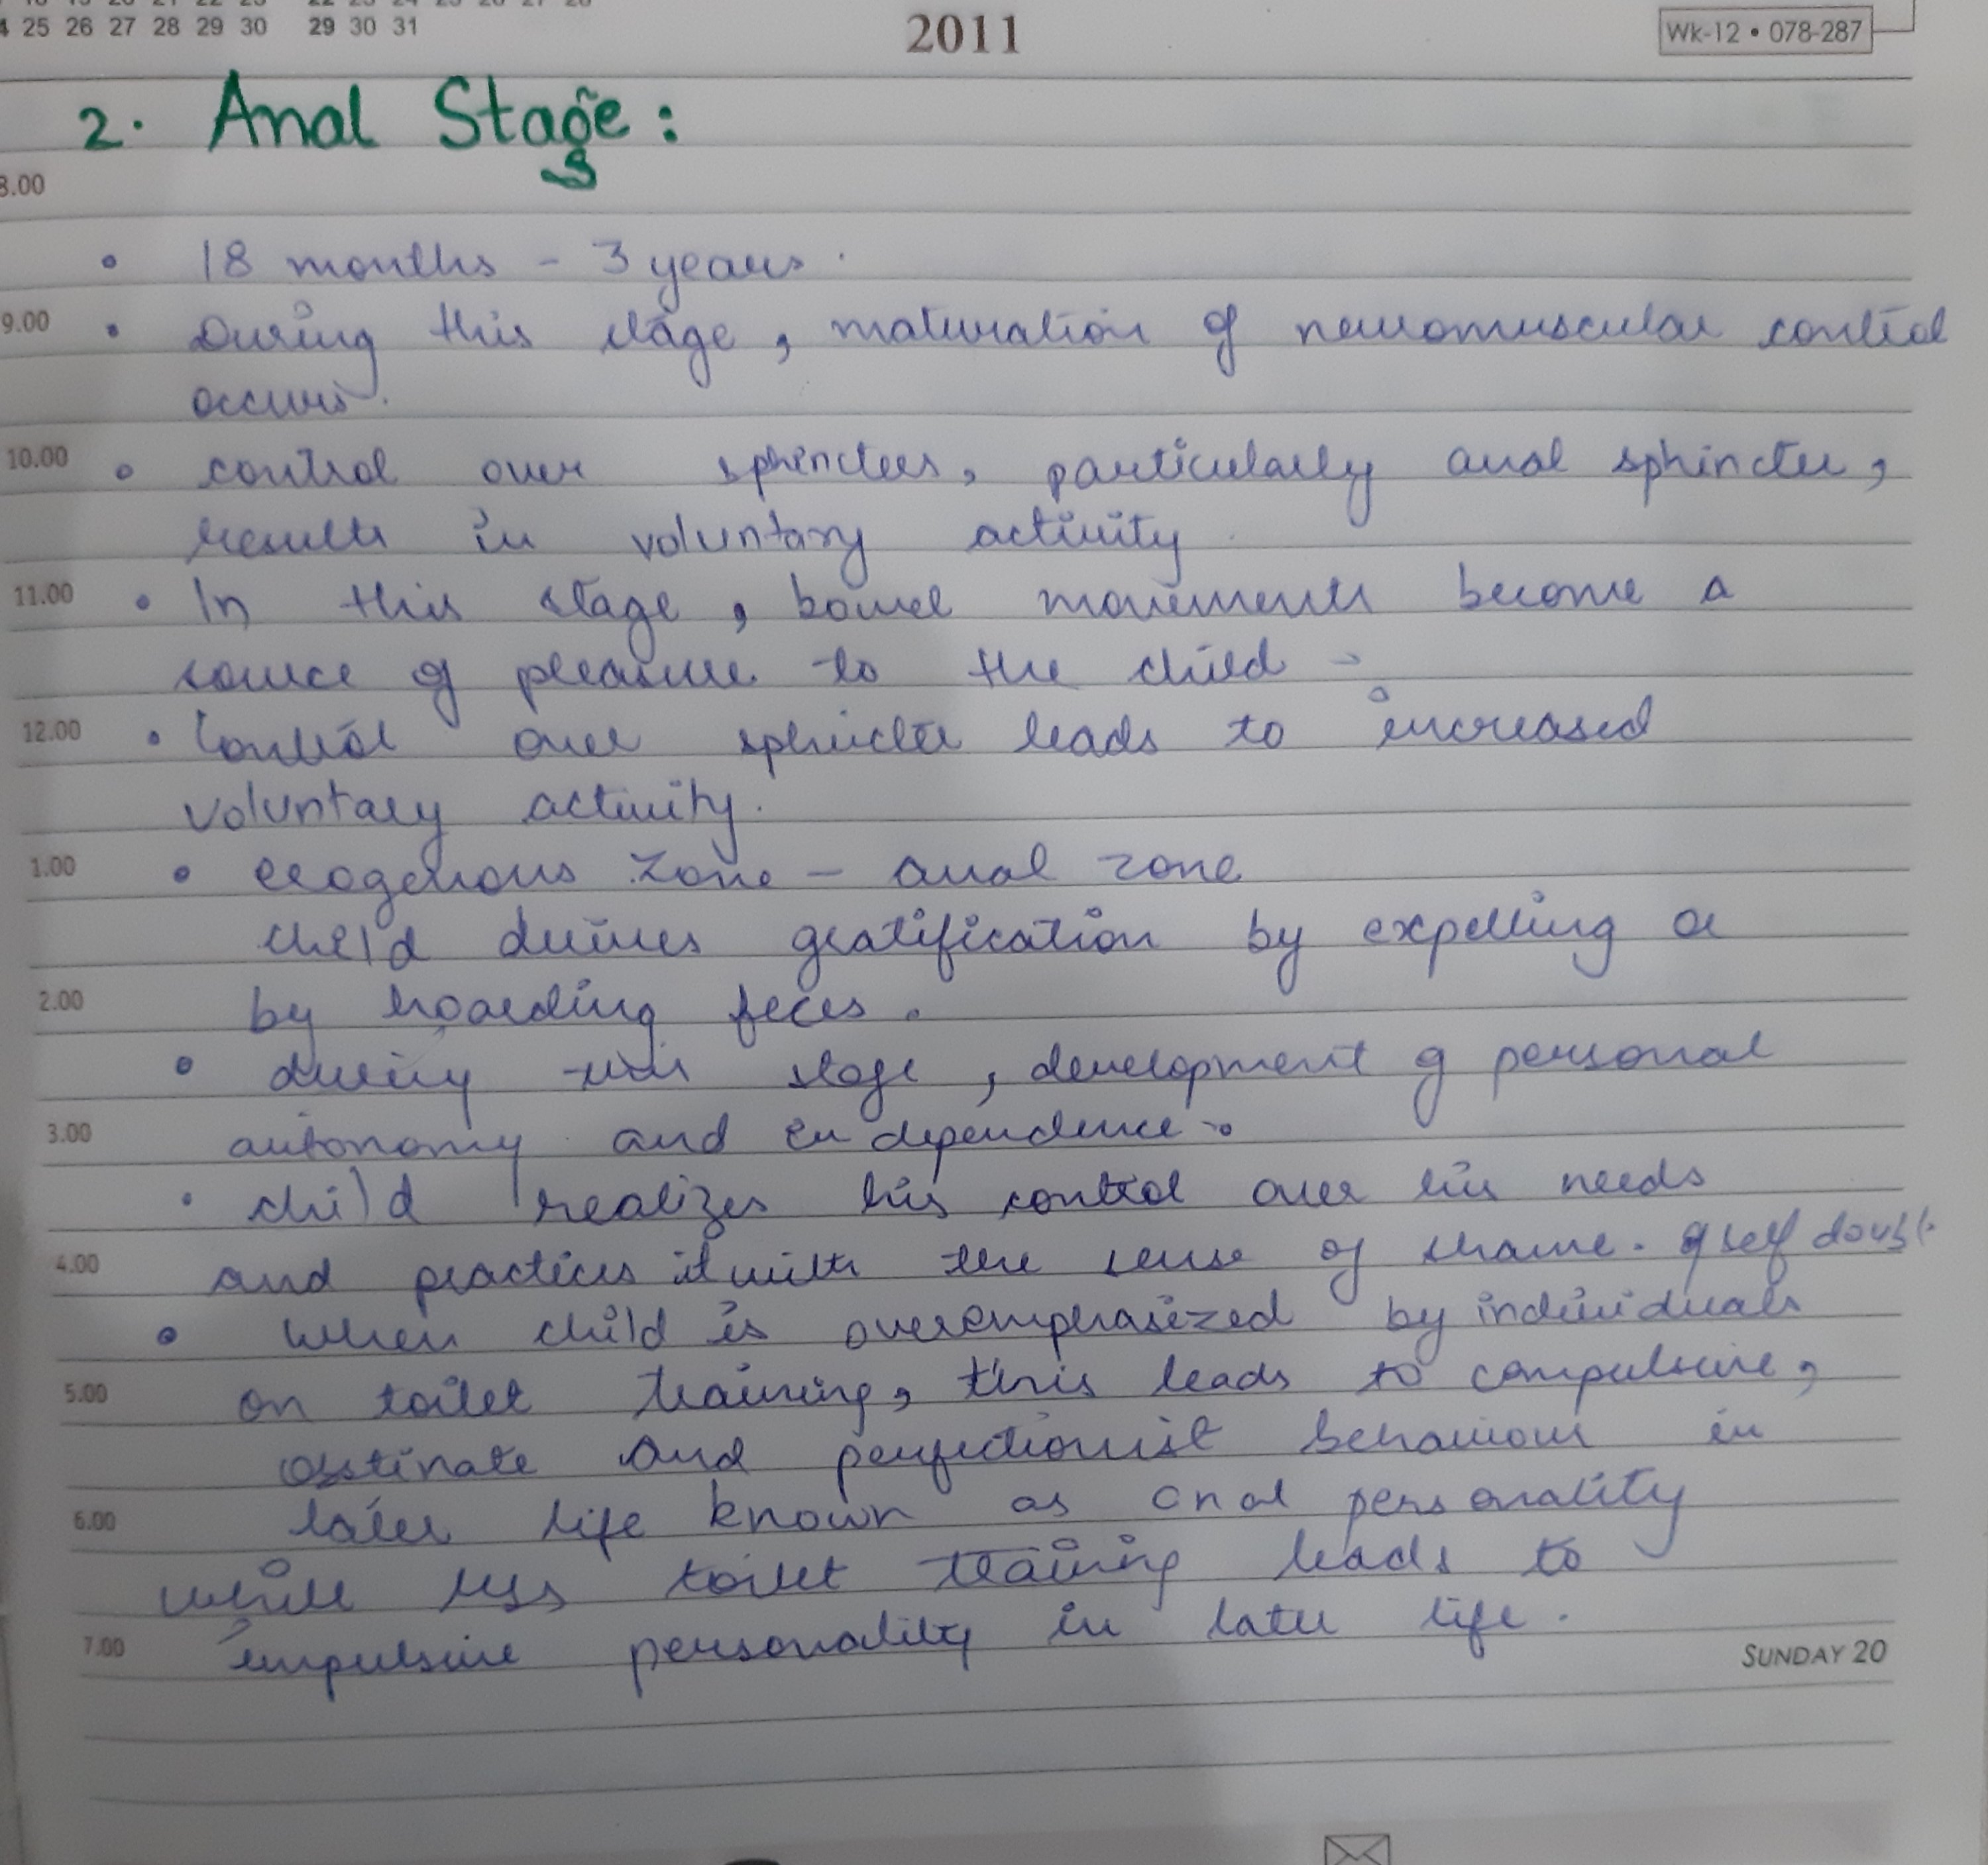 25 26 27 28 29 30 29 30 31
2011
Wk-12 • 078-287
2. Anal Stage:
8.00
• 18 months - 3 years.
9.00 • During this stage, maturation of neuromuscular control
occurs.
10.00 • control over sphincters, particularly anal sphincter,
results in voluntary activity
11.00 • In this stage, bowel movements become a
source of pleasure to the child -
12.00 • Control over sphincter leads to increased
voluntary activity.
1.00 • erogenous zone - anal zone
child derives gratification by expelling or
2.00 by hoarding feces.
• during this stage, development of personal
3.00 autonomy and independence.
• child realizes his control over his needs
4.00 and practices it with the sense of shame. of self doubt.
• When child is overemphasized by individuals
5.00 on toilet training, this leads to compulsive,
obstinate and perfectionist behaviour in
6.00 later life known as anal personality
while less toilet training leads to
7.00 impulsive personality in later life.
SUNDAY 20